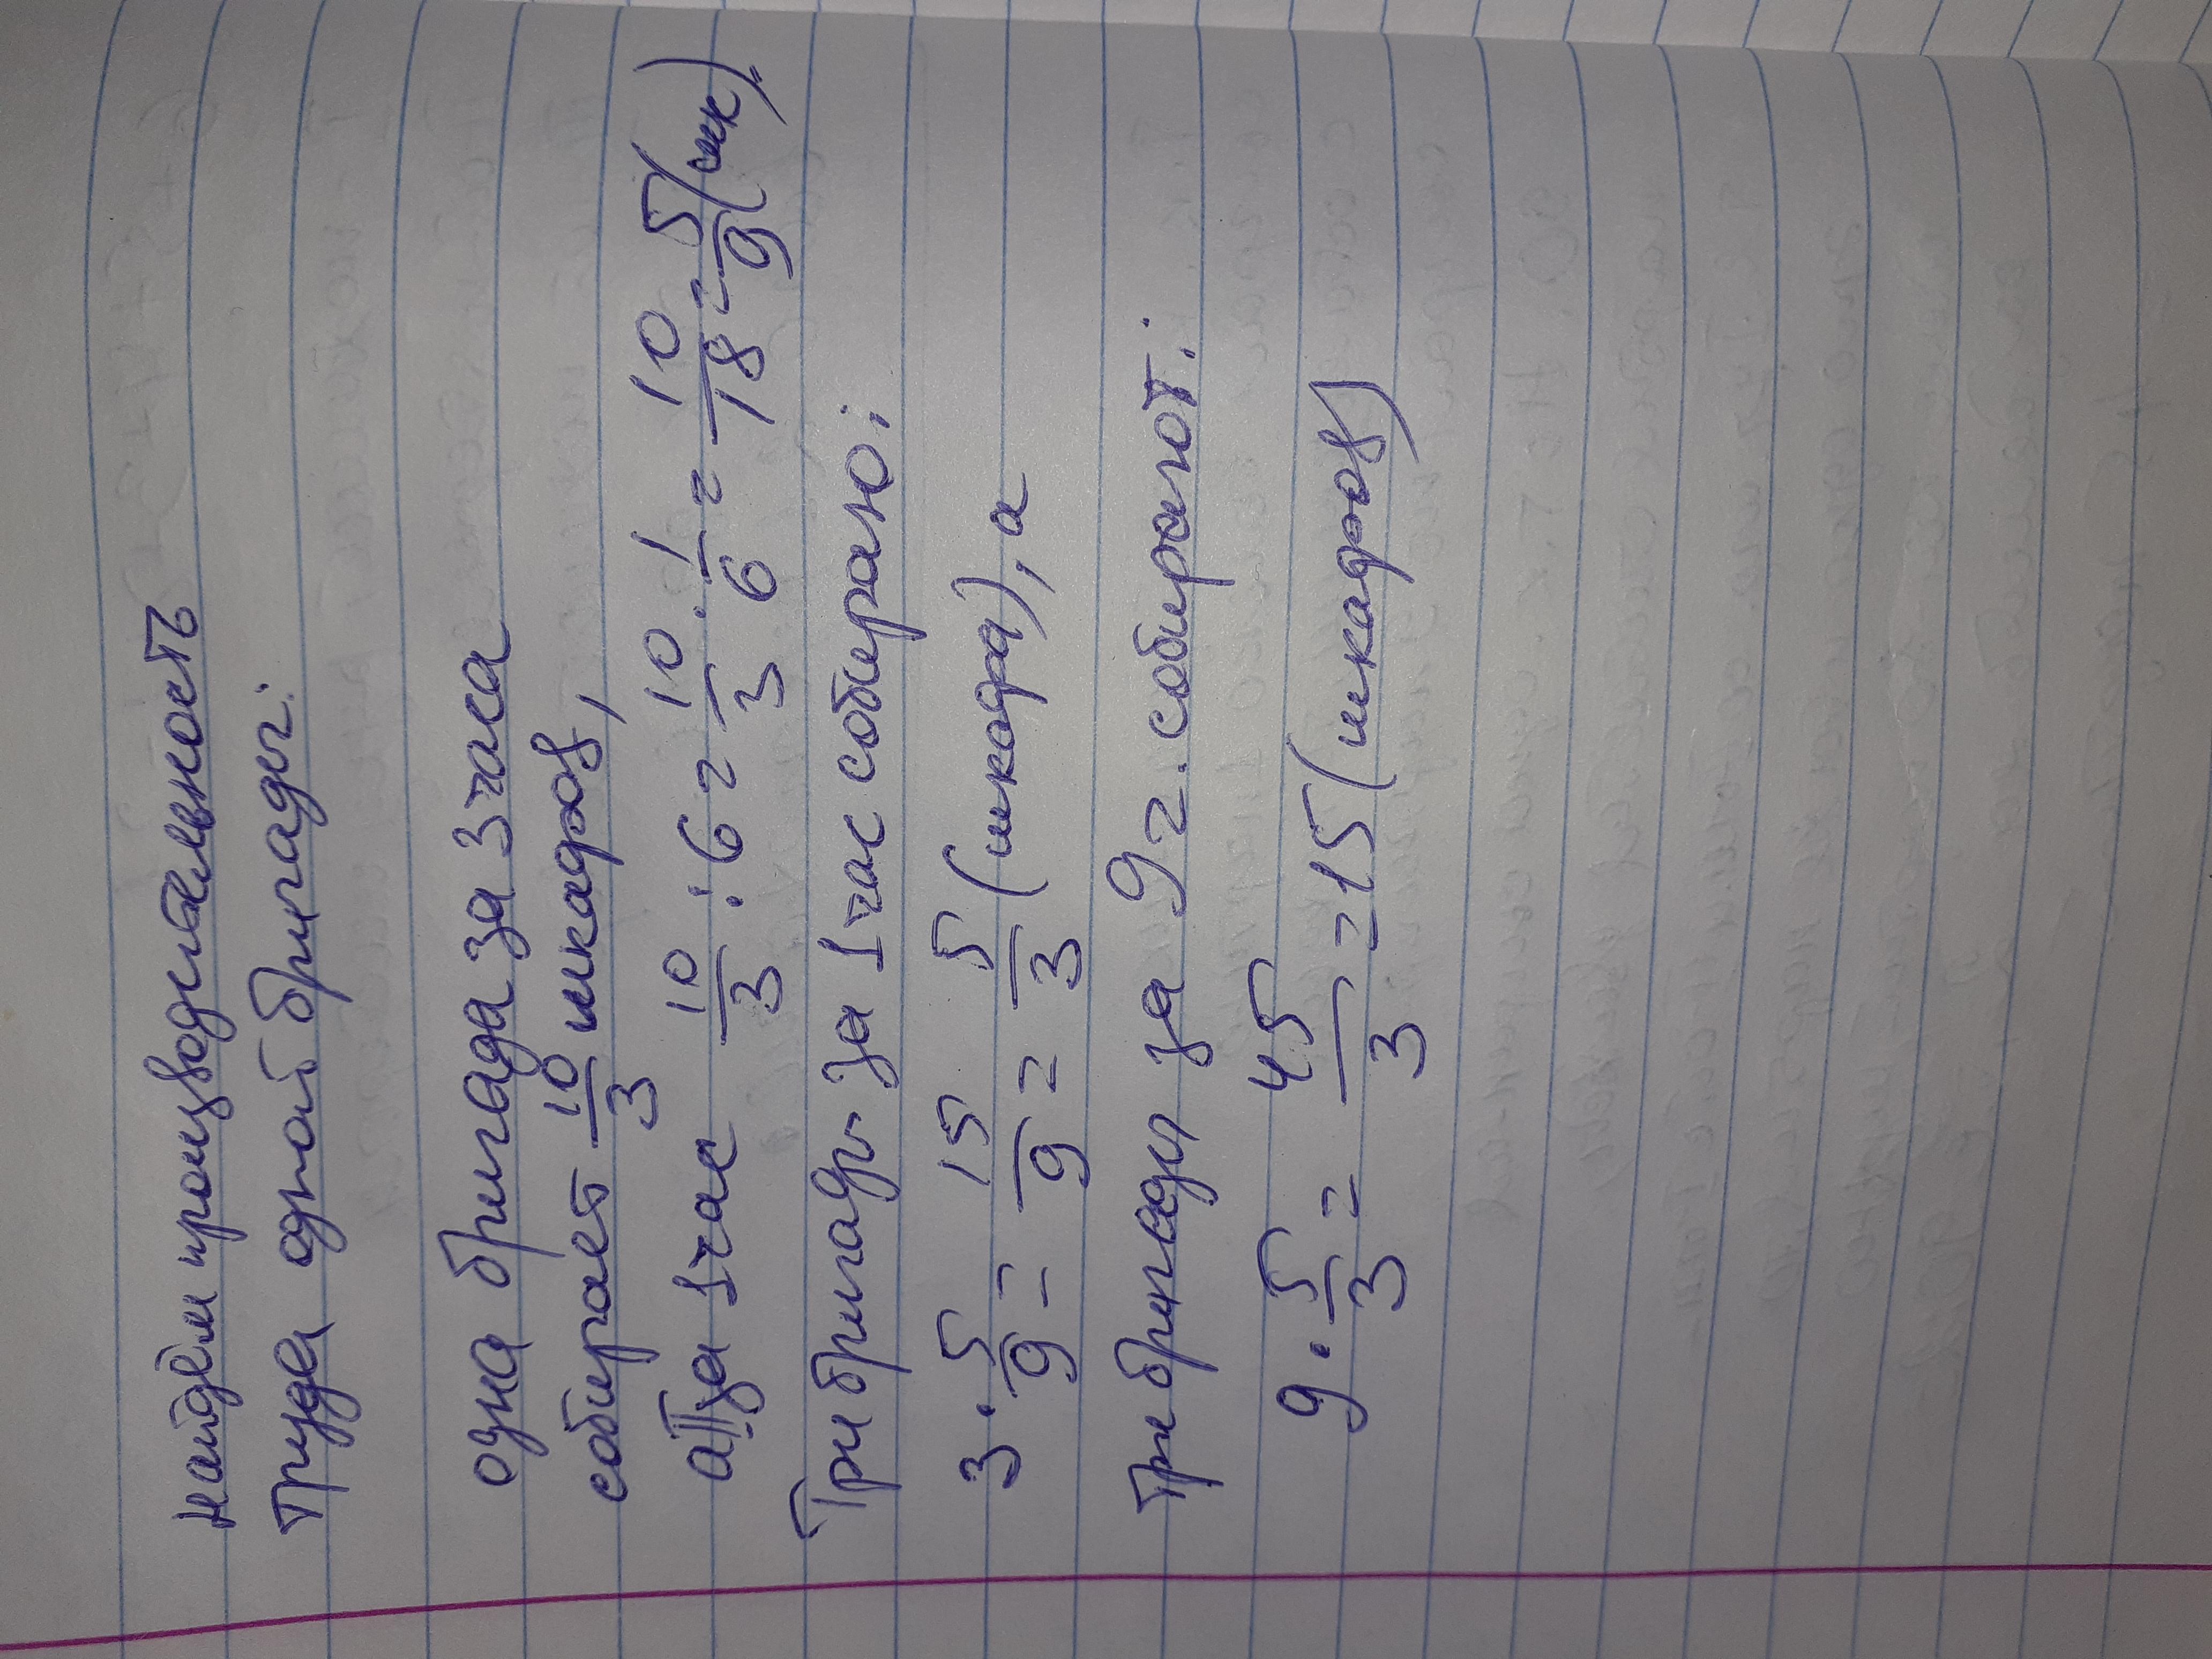 найдём производительность
труда одной бригады:
одна бригада за 3 часа
собирает 10/3 шкафов,
а за 1 час 10/3 : 6 = 10/3 · 1/6 = 10/18 = 5/9 (шк)
Три бригады за 1 час собираю:
3 · 5/9 = 15/9 = 5/3 (шкафа), а
три бригады за 9 ч. собирают:
9 · 5/3 = 45/3 = 15 (шкафов)